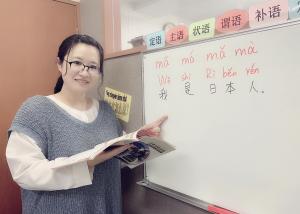 定语 主语 状语 谓语 补语
mā má mǎ mà
Wǒ shì Rì běn rén
我 是 日本人.